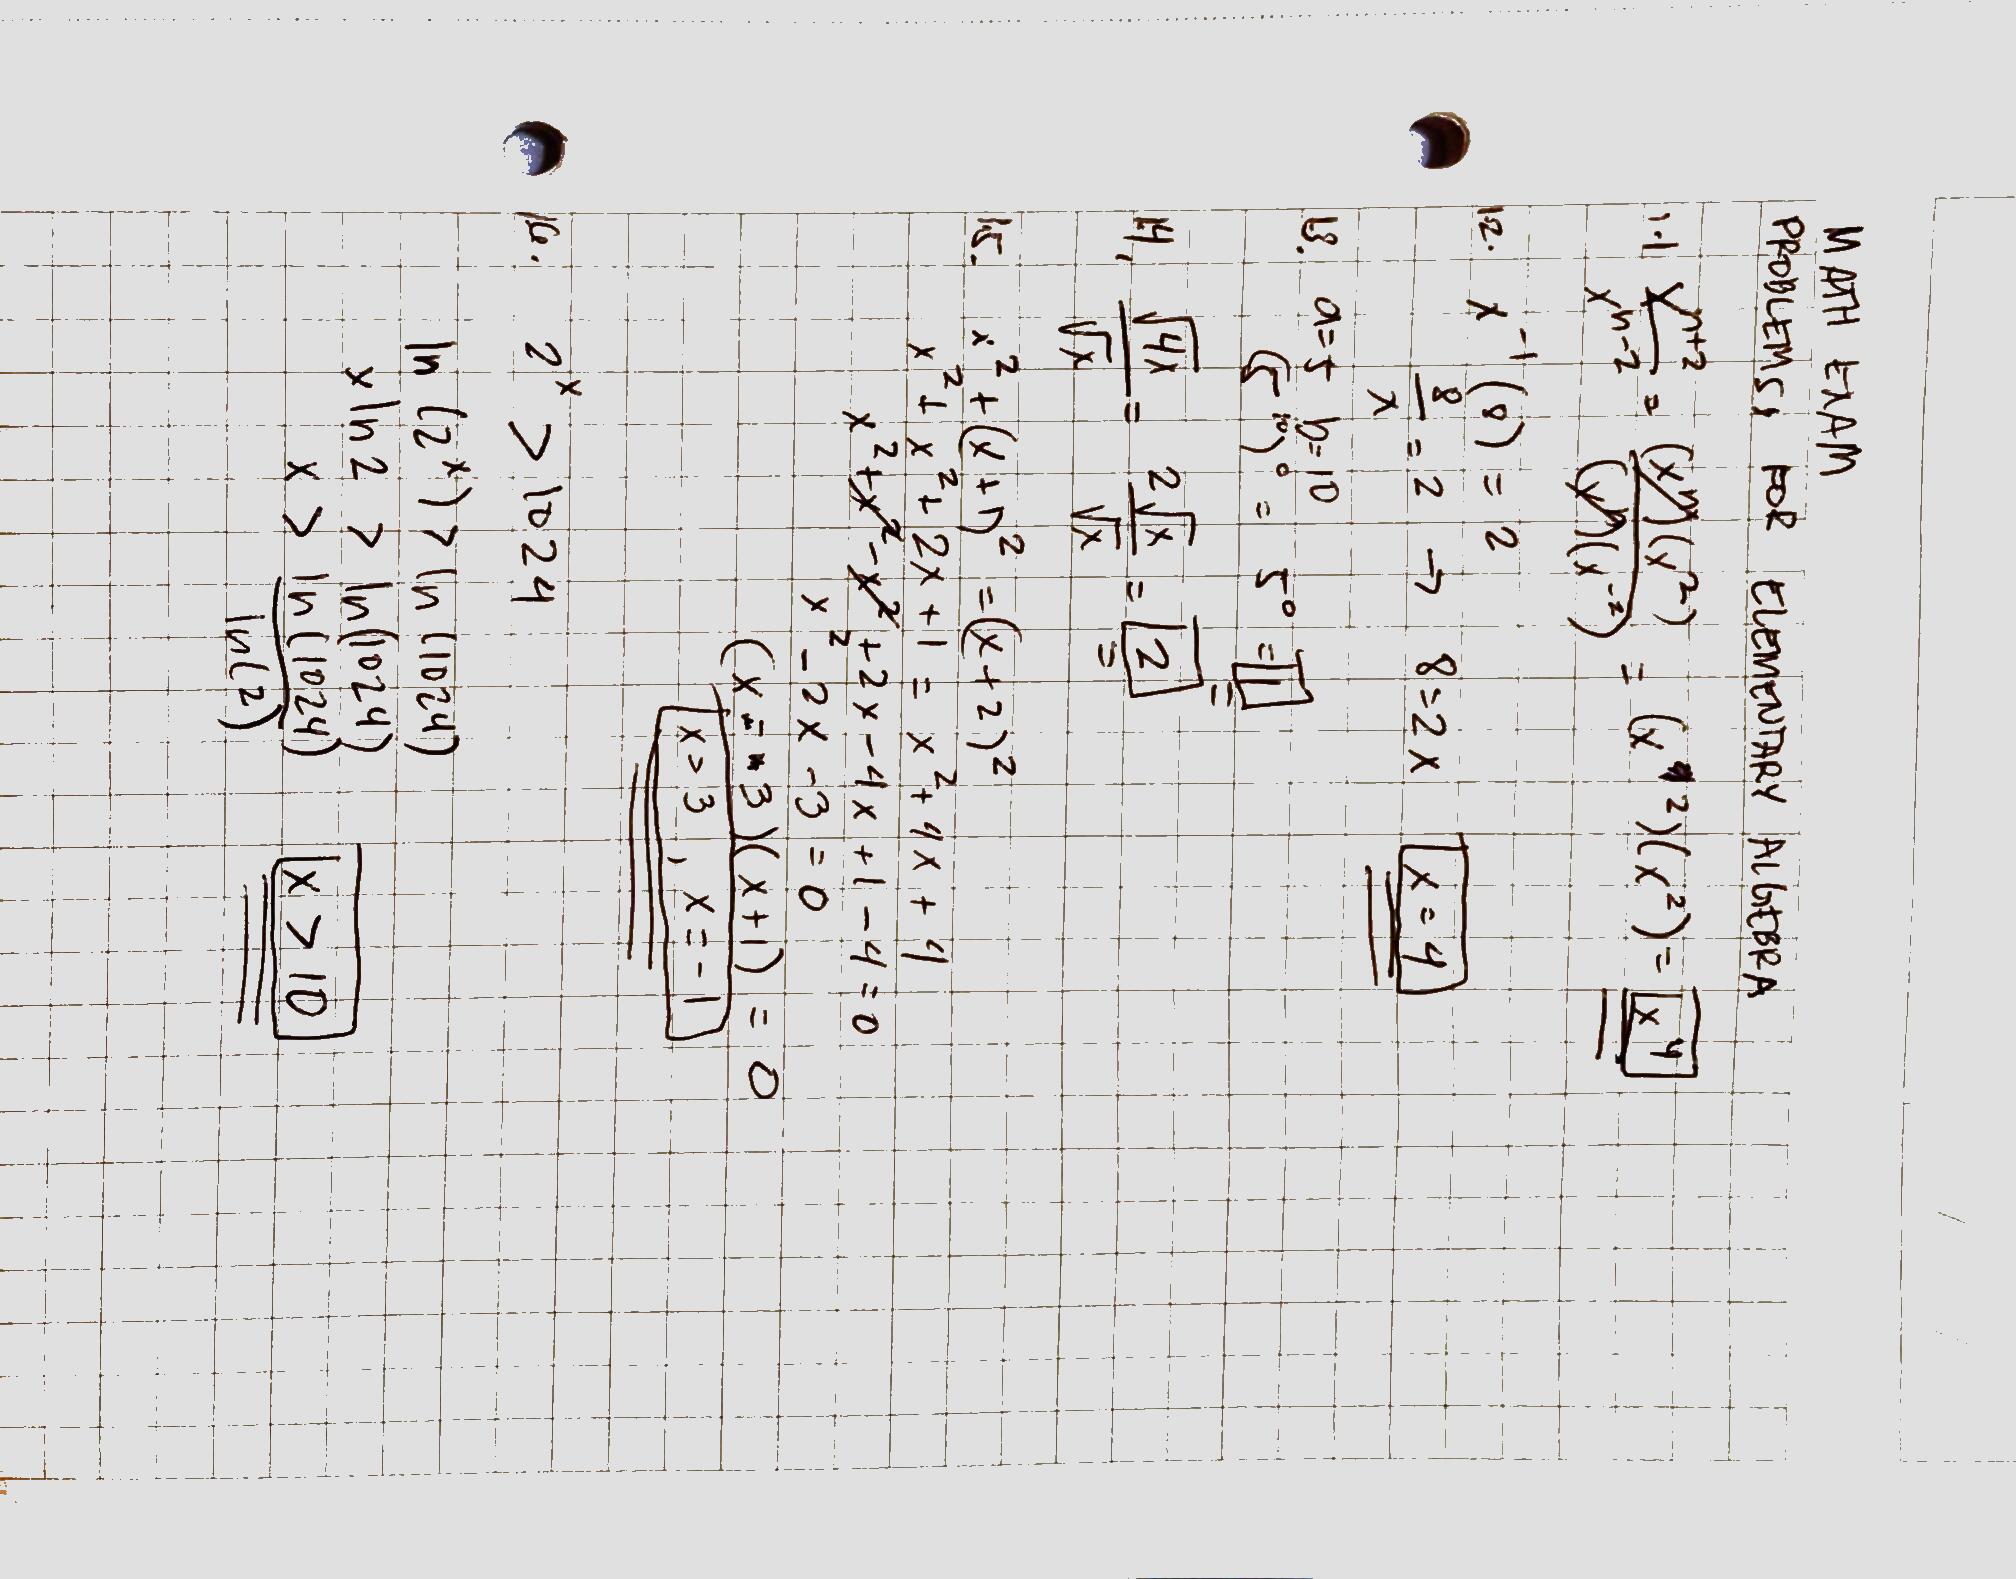 MATH EXAM
PROBLEMS FOR ELEMENTARY ALGEBRA
1.1 x^(n+2) / x^(n-2) = (x^n)(x^2) / (x^n)(x^-2) = (x^2)(x^2) = x^4
1.2. x^-1 (8) = 2
8/x = 2 → 8 = 2x x = 4
1.3. a = 5 b = 10
(5^10)^0 = 5^0 = 1
1.4. √4x / √x = 2√x / √x = 2
1.5. x^2 + (x+1)^2 = (x+2)^2
x^2 + x^2 + 2x + 1 = x^2 + 4x + 4
x^2 + x^2 - x^2 + 2x - 4x + 1 - 4 = 0
x^2 - 2x - 3 = 0
(x - 3)(x + 1) = 0
x > 3, x = -1
1.6. 2^x > 1024
ln (2^x) > ln (1024)
x ln 2 > ln (1024)
x > ln (1024) / ln (2) x > 10